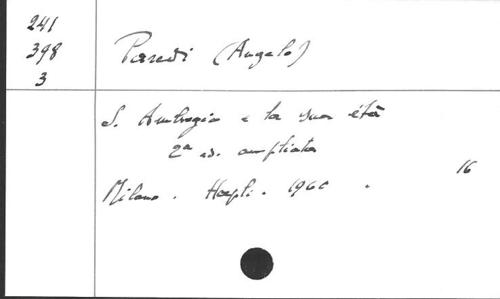 241
398
3
Paredi (Angelo)
S. Ambrogio e la sua età
2a ed. ampliata
Milano. Hoepli. 1960.
16